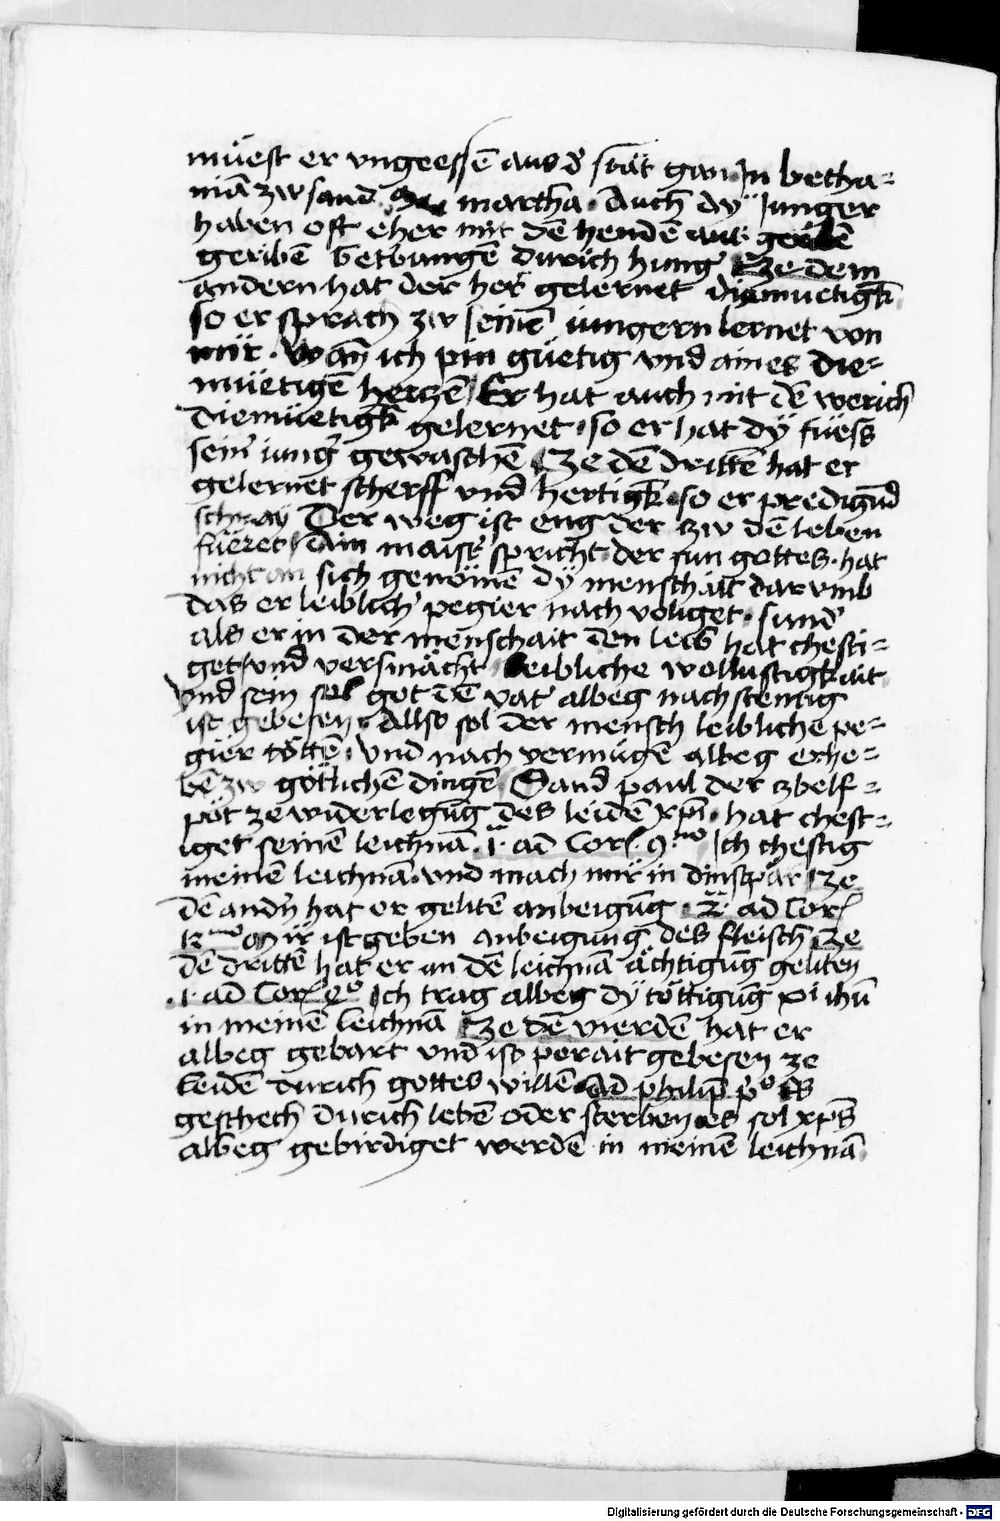 müest er vngeessē aus d̉ stät gan Jn betha-
niā zw sand martha. Auch dÿ Junger
haben oft eher mit dē hendē aus
geribē durich hung̉ Ze dem
andern hat der her̉ gelernet diemuetigk̄
so er sprach zw seinē iungern lernet von
mir. Wañ ich pin güetig vnd aines die-
müetigē herczē Er hat auch mit dē werich
Diemüetigk̄ gelernet. so er hat dÿ füess
sein̉ iung̉ gewaschē Ze dē drittē hat er
gelernet scherff vnd hertigk̄. so er predigūd
schray Der weg ist eng der zw dē leben
füeret Ain maist̉ spricht der sun gottes. hat
nicht an sich genömē dÿ menschāit darvmb
das er leiblich̉ pegier nach volget. sund̉
als er in der menschait den leib hat chesti-
get vnd versmächt leibliche wollustigkait
vnd sein sel got dē vat̉ albeg nachstentig
ist gebesen. Allso sol der mensch leibliche pe-
gier töttē. Vnd nach vermügē albeg erhe-
bē zw götlichē dingē Sand paul der zbelf-
pöt ze widerlegūg des leidē xp̄i. hat chest-
iget seinē leichnā. i. ad Cor̄. 9.no Ich chestig
meinē leichnā. vnd mach mir in dinstpār Ze
dē and̉n hat er gelitē anbeigūg. 2. ad Cor̄
12mo Mir ist gebē anbeigung des fleisch Ze
dē drittē hat er an dē leichnā ächtigūg geliten
.1. ad Cor̄ Ich trag albeg dÿ töttigūg xp̄i ihū
in meinē leichnā Ze dē vierdē hat er
albeg gebart vnd ist perait gebesen ze
leidē durich gottes willē Ad philip̄ p̉o Es
geschech durich lebē oder sterben es sol xp̄s
albeg gebirdiget werdē in meinē leichnā
Digitalisierung gefördert durch die Deutsche Forschungsgemeinschaft - DFG